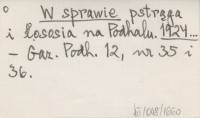 W sprawie pstrąga
i łososia na Podhalu. 1924...
– Gaz. Podh. 12, nr 35 i
36.